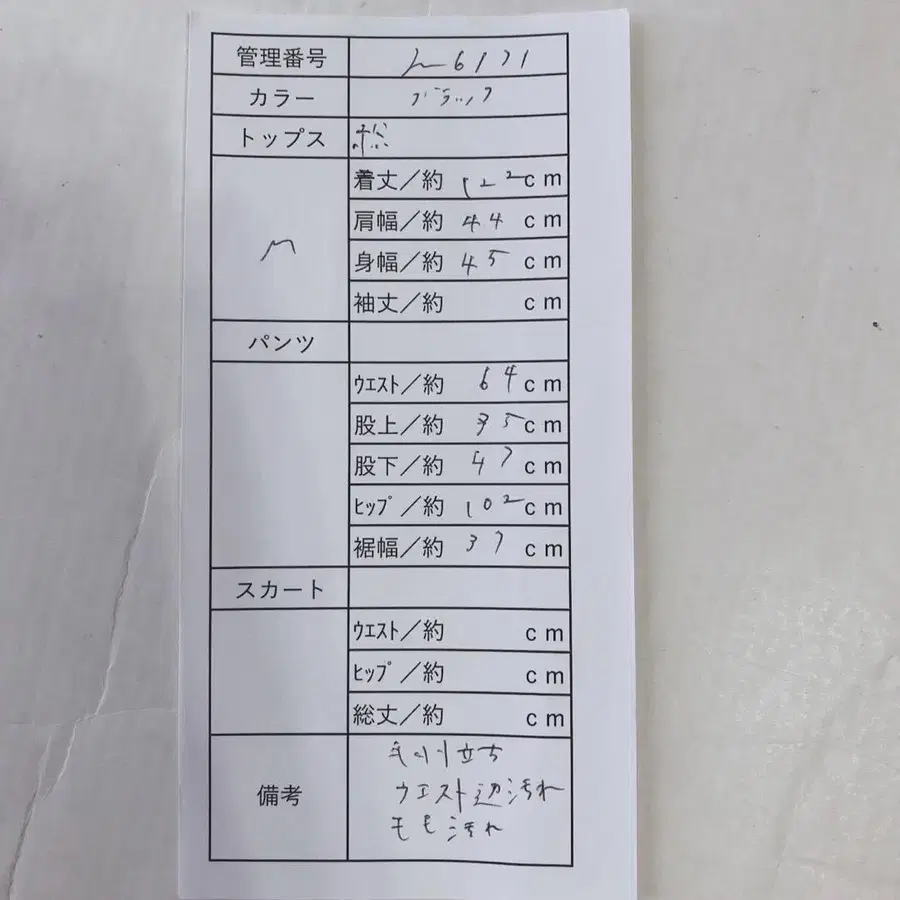 管理番号 6171
カラー ブラック
トップス 総
M
着丈／約 122cm
肩幅／約 44cm
身幅／約 45cm
袖丈／約 cm
パンツ
ウエスト／約 64cm
股上／約 35cm
股下／約 47cm
ヒップ／約 102cm
裾幅／約 37cm
スカート
ウエスト／約 cm
ヒップ／約 cm
総丈／約 cm
備考
毛羽立ち
ウエスト辺汚れ
モモ汚れ